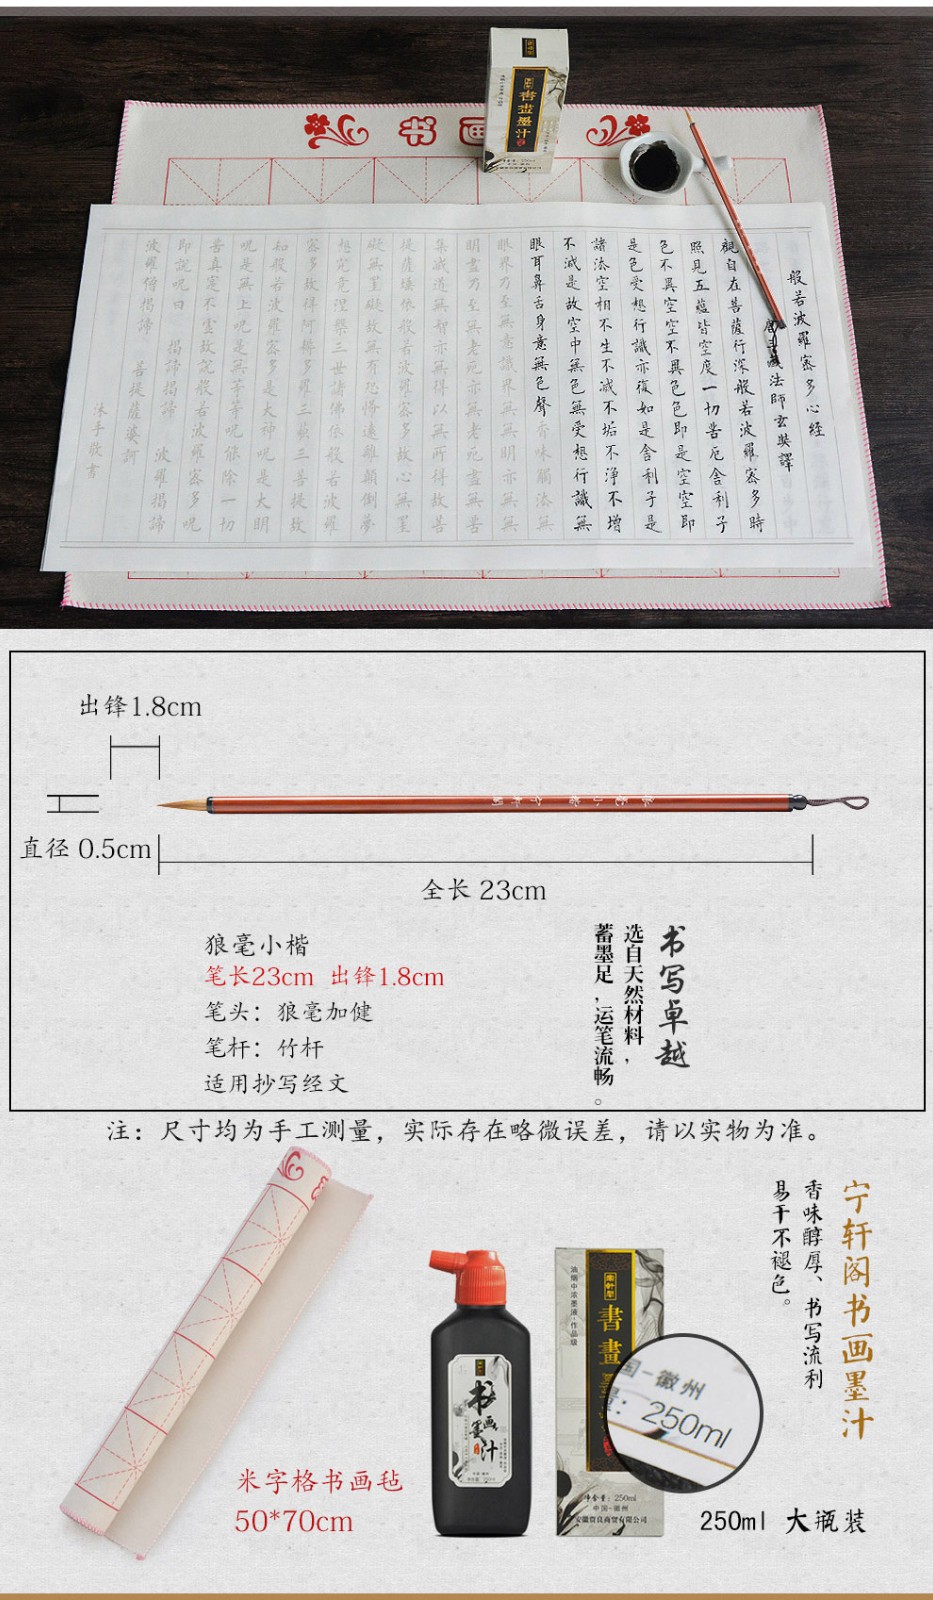 书画
書畫墨汁
般若波羅蜜多心經
唐三藏法師玄奘譯
觀自在菩薩行深般若波羅蜜多時
照見五蘊皆空度一切苦厄舍利子
色不異空空不異色色即是空空即
是色受想行識亦復如是舍利子是
諸法空相不生不滅不垢不淨不增
不減是故空中無色無受想行識無
眼耳鼻舌身意無色聲香味觸法無
眼界乃至無意識界無無明亦無無
明盡乃至無老死亦無老死盡無苦
集滅道無智亦無得以無所得故菩
提薩埵依般若波羅蜜多故心無罣
礙無罣礙故無有恐怖遠離顛倒夢
想究竟涅槃三世諸佛依般若波羅
蜜多故得阿耨多羅三藐三菩提故
知般若波羅蜜多是大神呪是大明
呪是無上呪是無等等呪能除一切
苦真實不虛故說般若波羅蜜多呪
即說呪曰 揭諦揭諦 波羅揭諦
波羅僧揭諦 菩提薩婆訶
沐手敬書
出锋1.8cm
直径 0.5cm
全长 23cm
狼毫小楷
笔长23cm 出锋1.8cm
笔头：狼毫加健
笔杆：竹杆
适用抄写经文
书写卓越
选自天然材料，
蓄墨足，运笔流畅。
注：尺寸均为手工测量，实际存在略微误差，请以实物为准。
宁轩阁书画墨汁
香味醇厚、书写流利
易干不褪色。
米字格书画毡
50*70cm
书画墨汁
油烟中浓墨液·作品级
書畫
国-徽州
量：250ml
净含量：250ml
中国-徽州
250ml 大瓶装